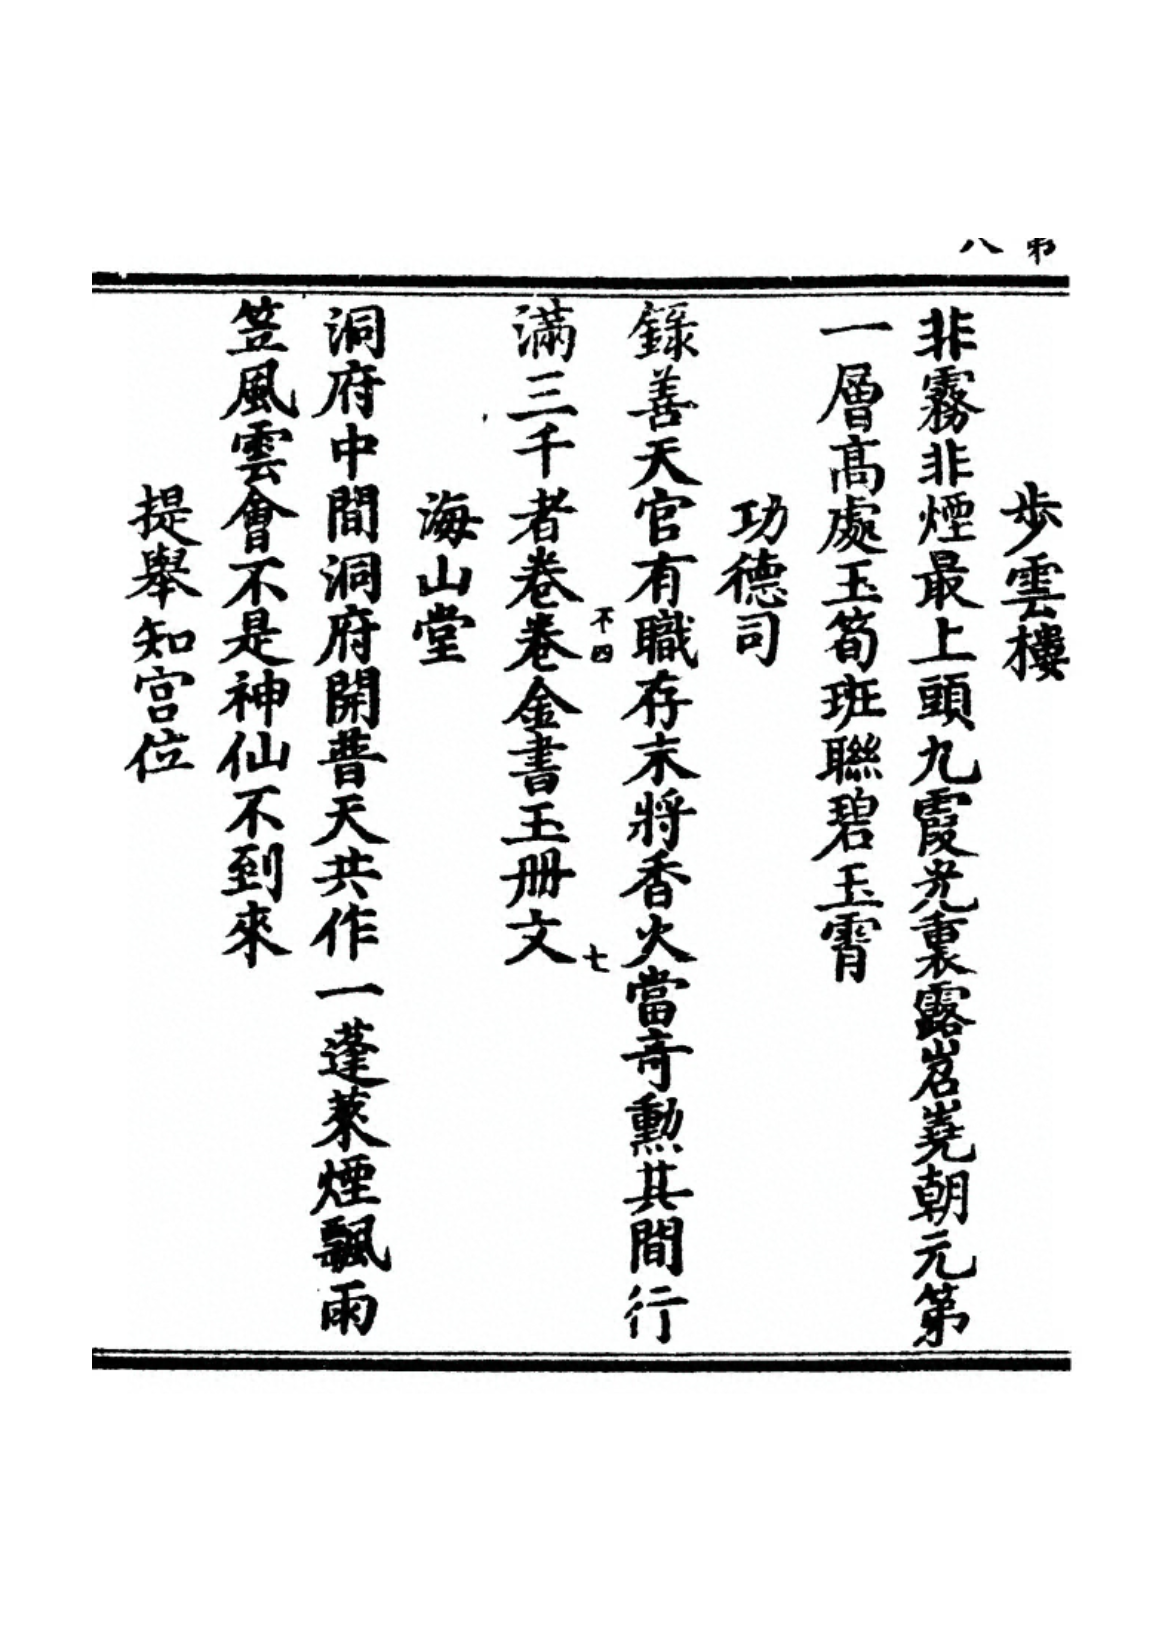 第
八
步雲樓
非霧非煙最上頭九霞光裏露岧嶤朝元第
一層高處玉筍班聯碧玉霄
功德司
錄善天官有職存末將香火當奇勲其間行
不四
七
滿三千者卷卷金書玉册文
海山堂
洞府中間洞府開普天共作一蓬萊煙飄雨
笠風雲會不是神仙不到來
提舉知宮位